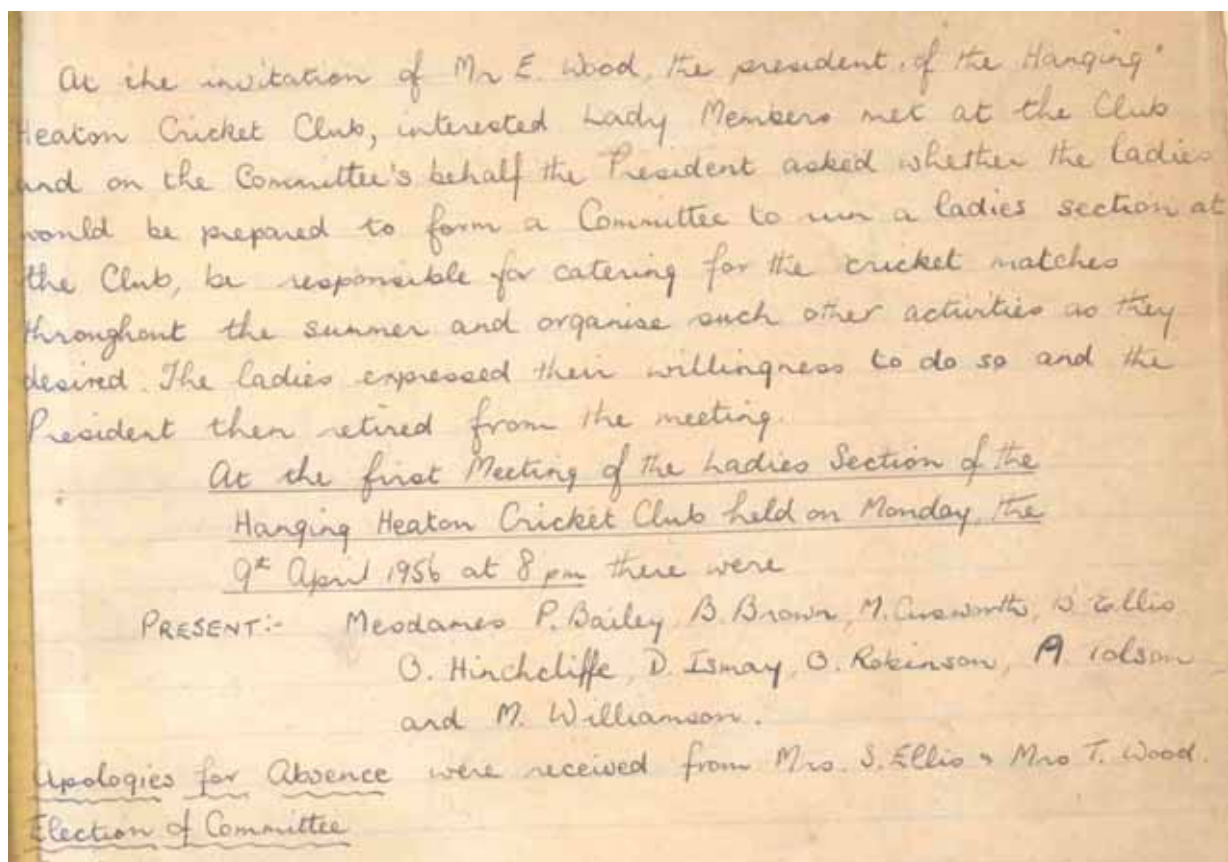 At the invitation of Mr E. Wood, the president, of the Hanging
Heaton Cricket Club, interested Lady Members met at the Club
and on the Committee's behalf the President asked whether the ladies
would be prepared to form a Committee to run a ladies section at
the Club, be responsible for catering for the cricket matches
throughout the summer and organise such other activities as they
desired. The ladies expressed their willingness to do so and the
President then retired from the meeting.
At the first Meeting of the Ladies Section of the
Hanging Heaton Cricket Club held on Monday, the
9th April 1956 at 8 pm there were
PRESENT:- Mesdames P. Bailey, B. Brown, M. Cusworth, Ellis
O. Hinchcliffe, D. Ismay, O. Robinson, A. Tolson
and M. Williamson.
Apologies for Absence were received from Mrs. S. Ellis & Mrs T. Wood.
Election of Committee